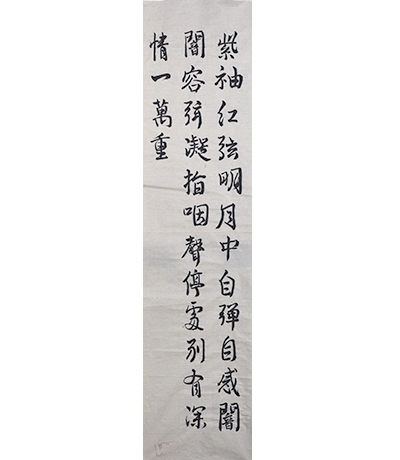 紫袖红弦明月中自彈自感闇
闇容弦凝指咽聲停處别有深
情一萬重